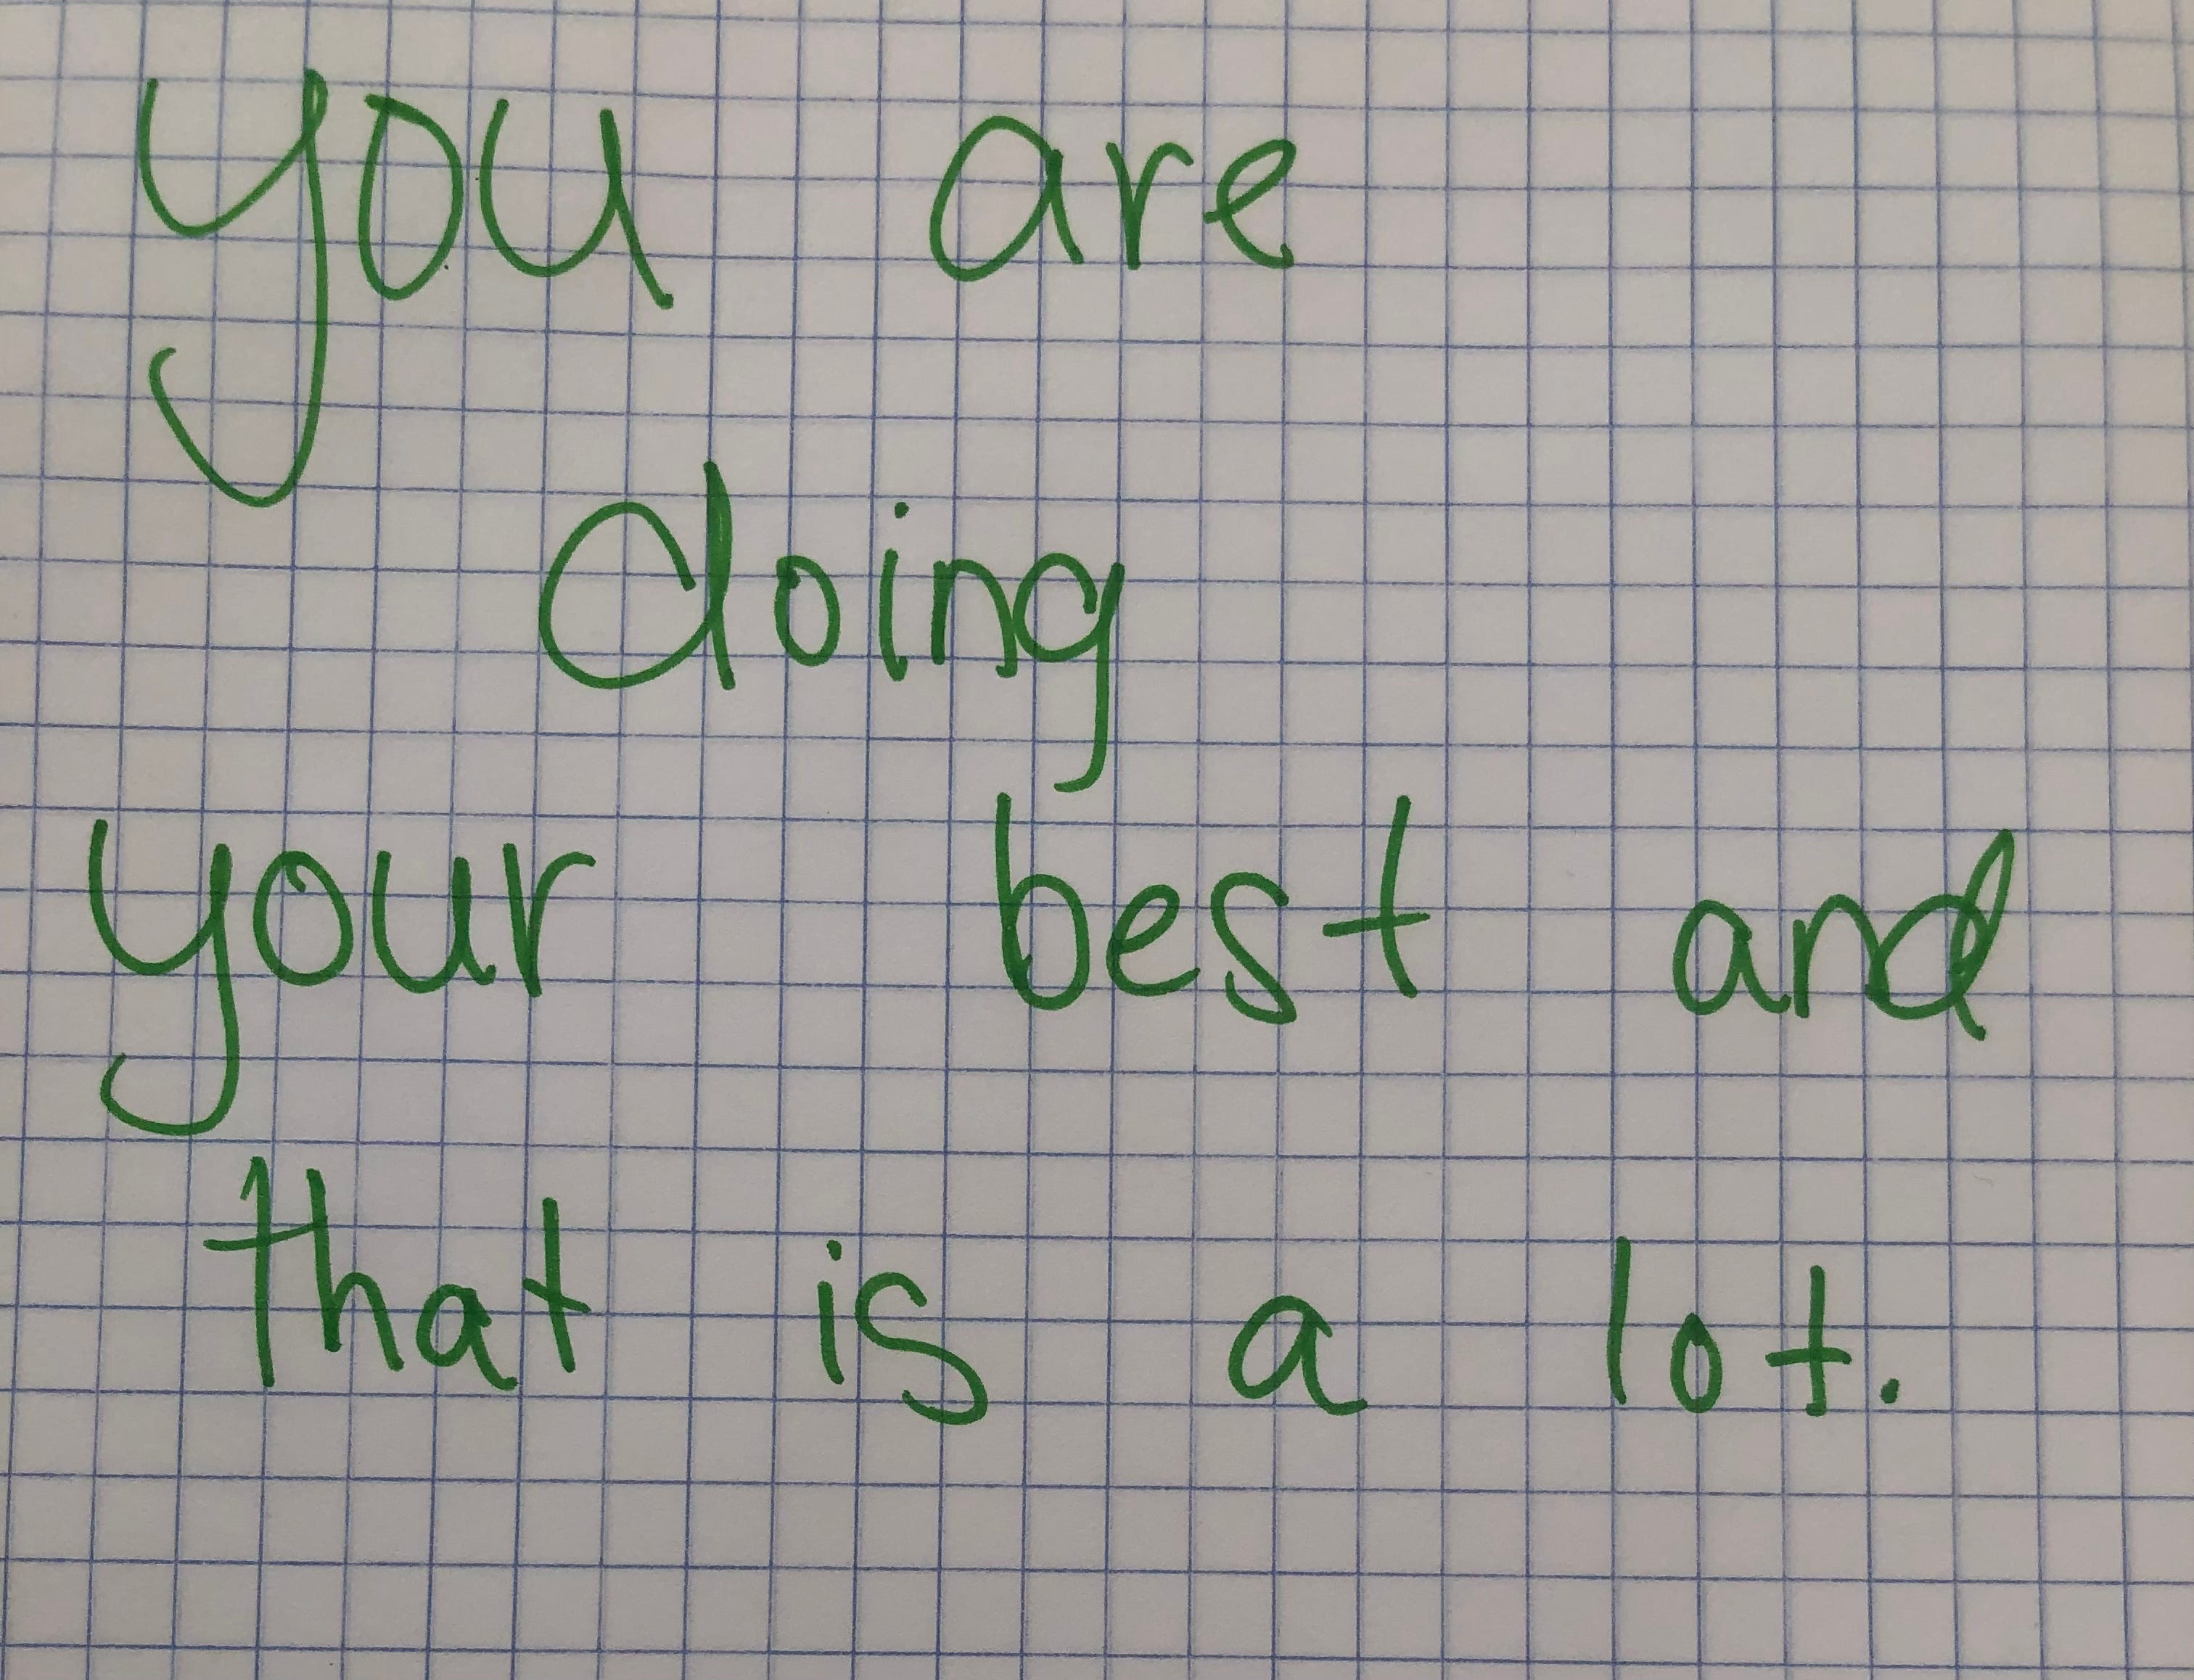 you are
doing
your best and
that is a lot.